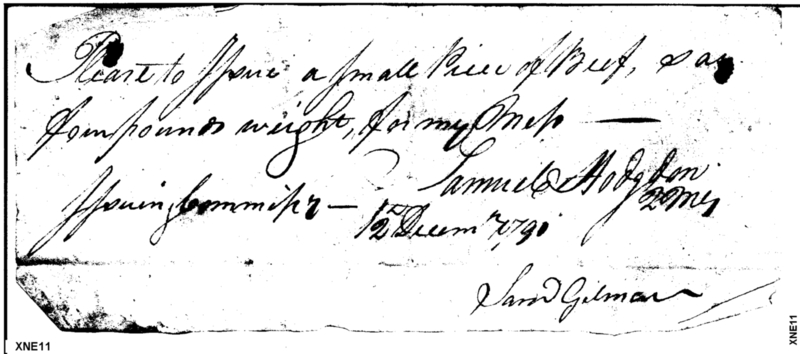 Please to Issue a small Piece of Beef, say
four pounds weight, for my Mess —
Samuel Hodgdon
Issuing Commissy — 2 M G
12th Decemr 1791
Saml Gilman
XNE11
XNE11